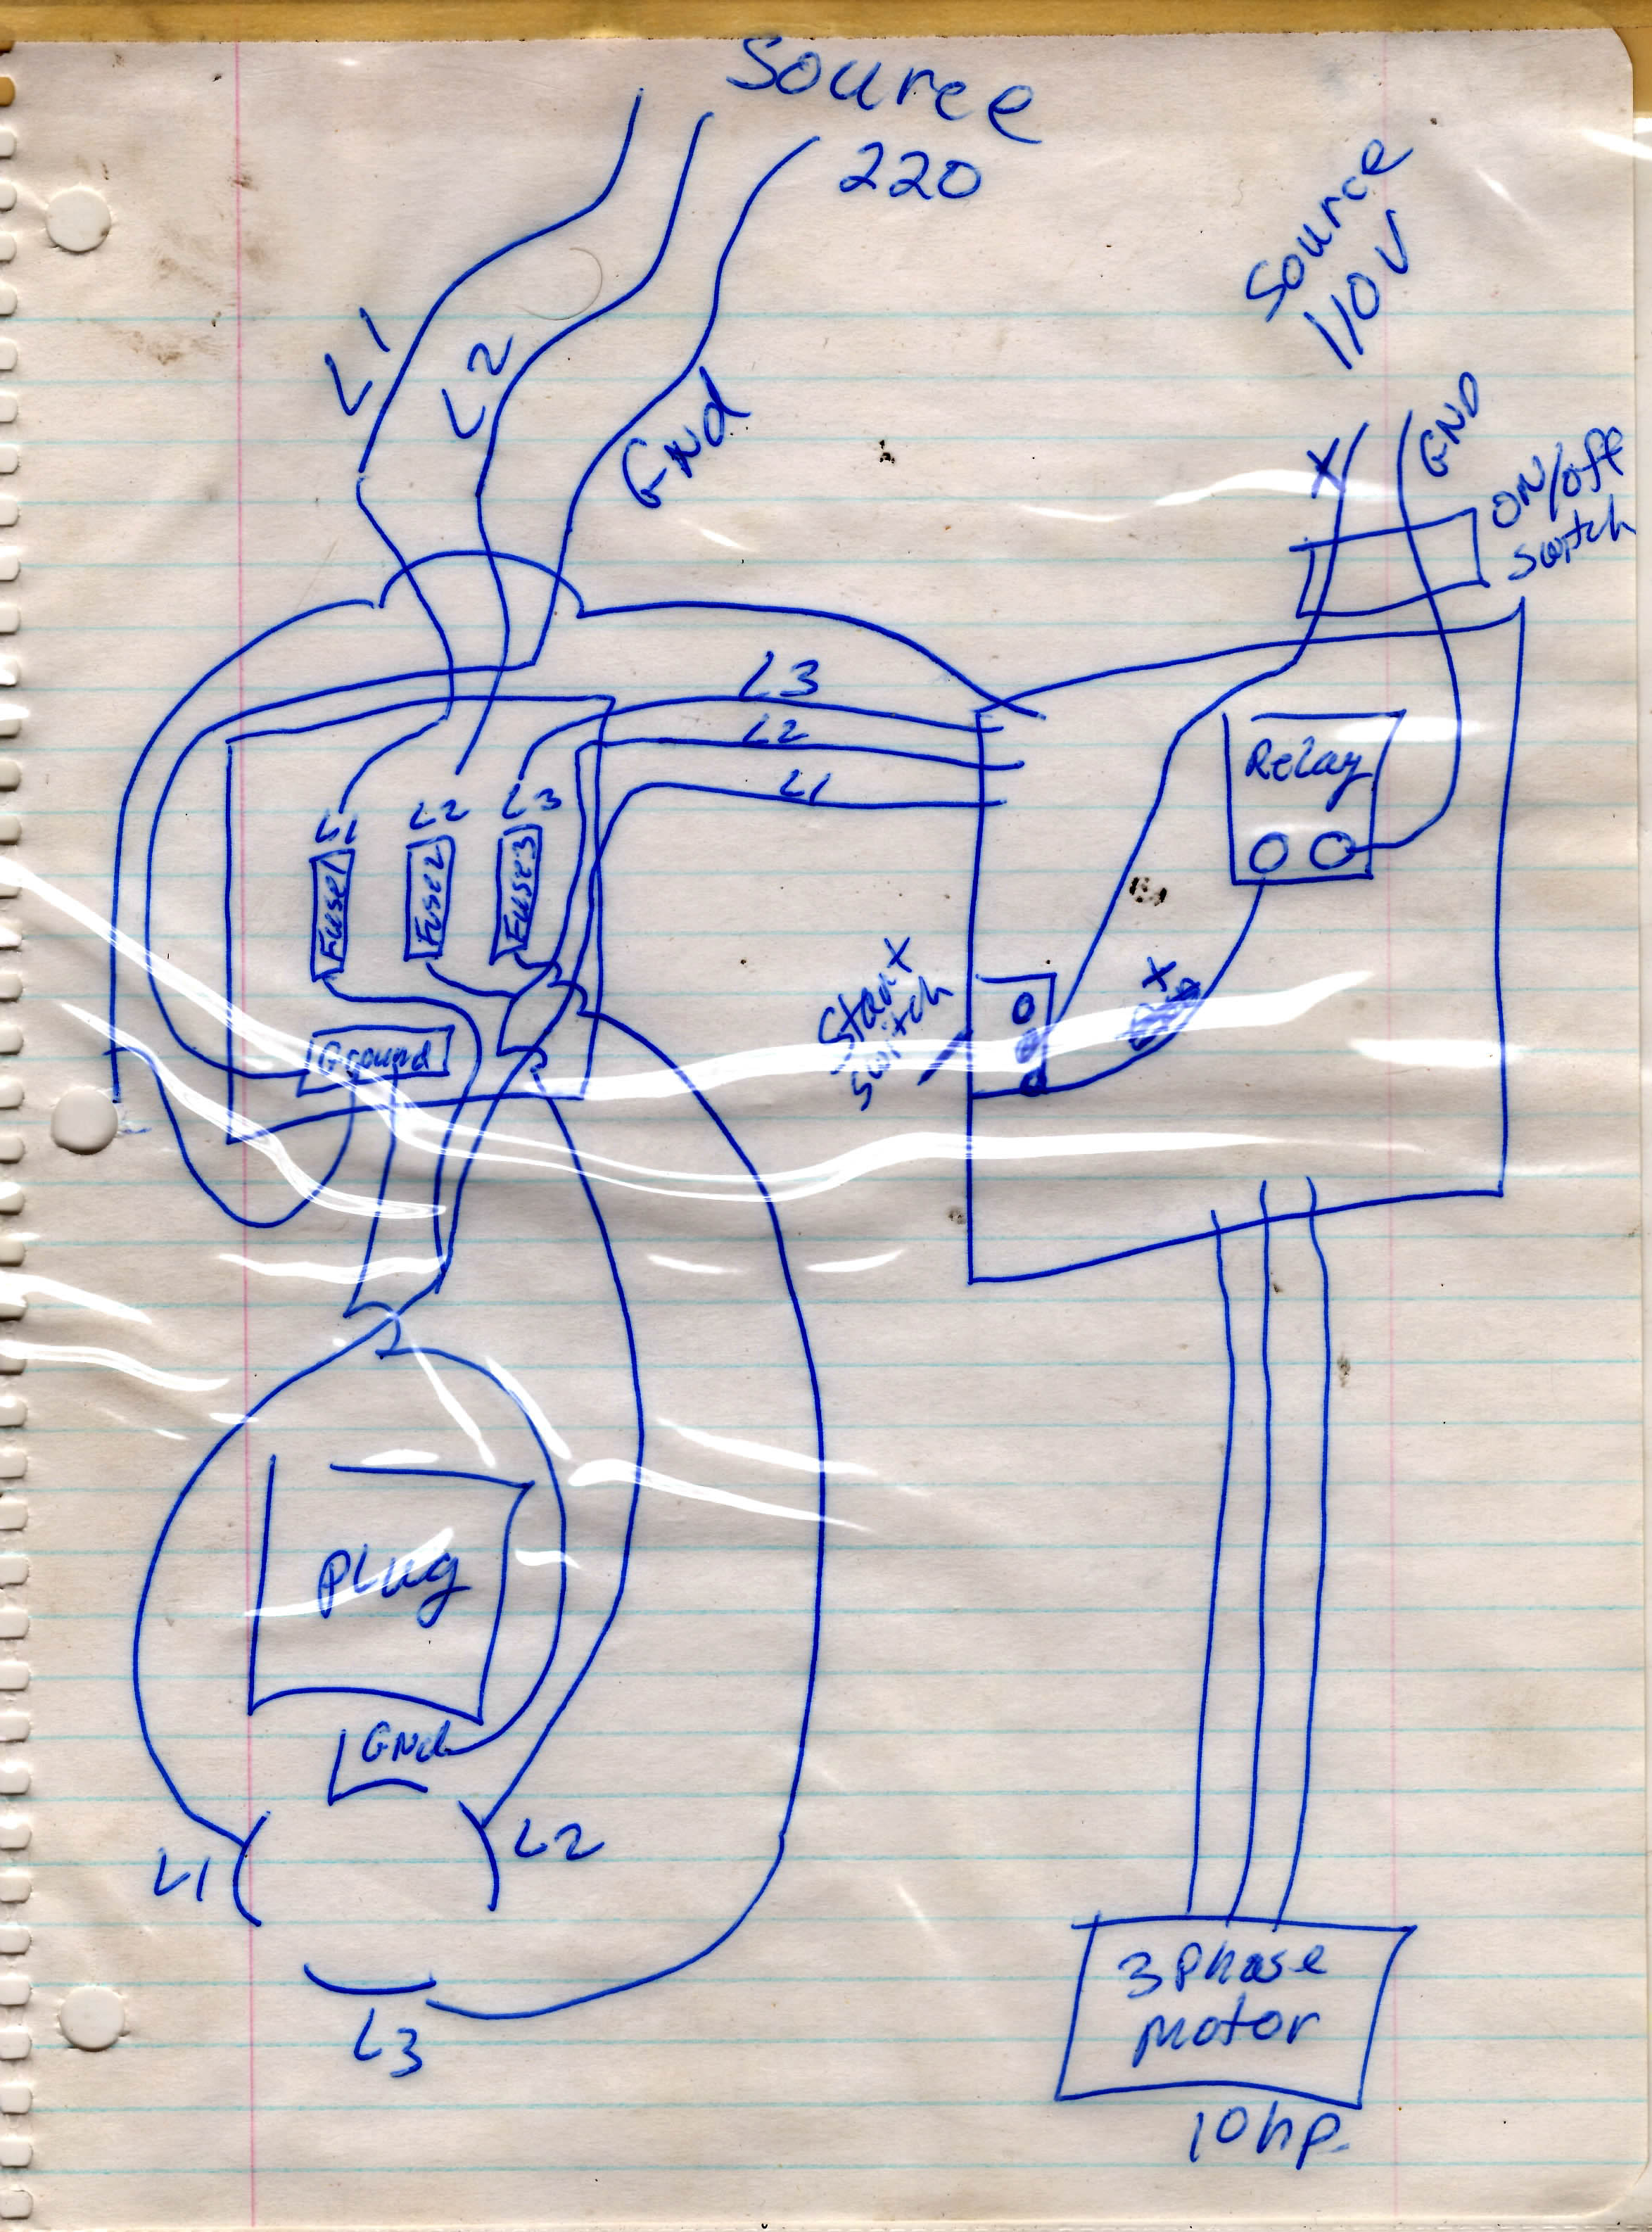 Source
220
Source
110 V
L1
L2
GNd
X
GND
ON/off
switch
L3
L2
L1
L1
L2
L3
Fuse1
Fuse2
Fuse3
Ground
Relay
Start
switch
X
Plug
GNd
L1
L2
L3
3 Phase
Motor
10 hp.